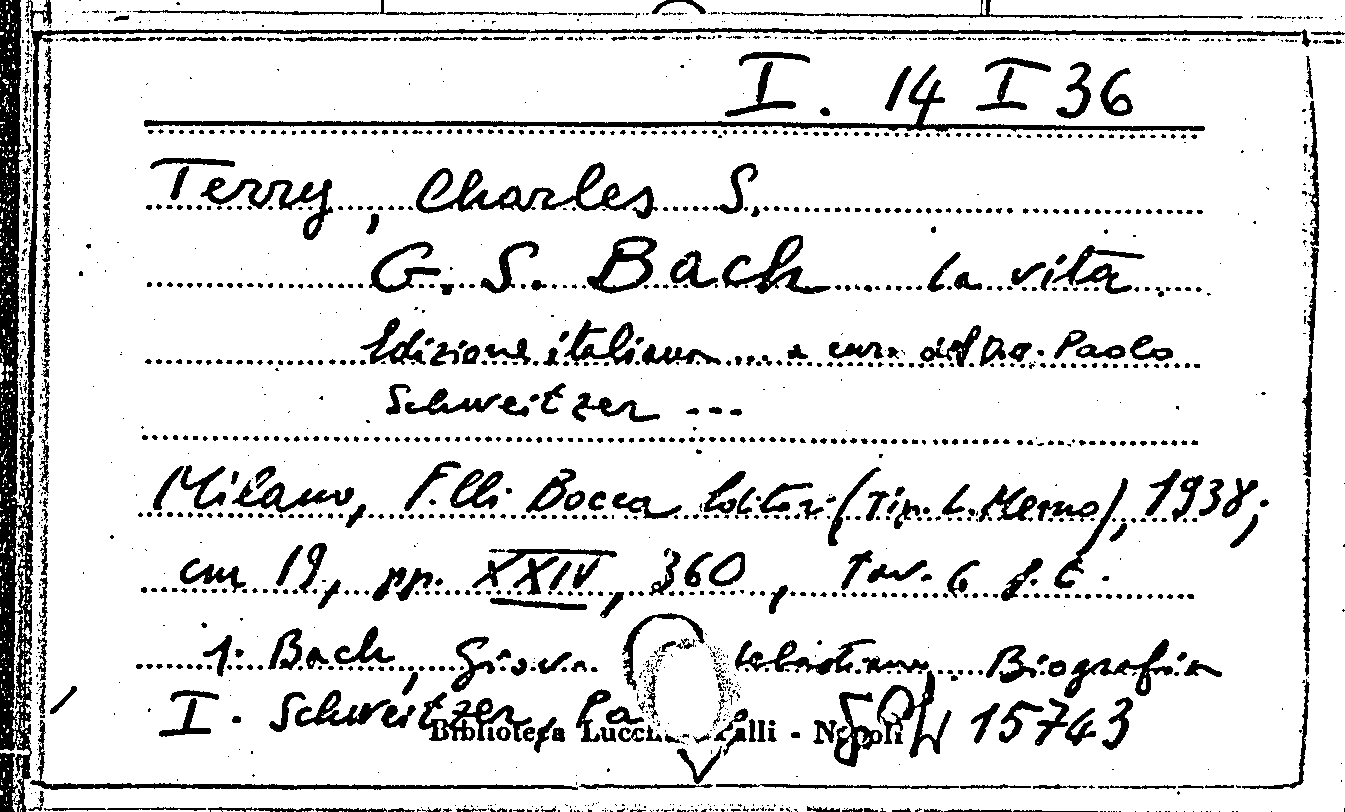 I. 14 I 36
Terry, Charles S.
G. S. Bach. La vita
Edizione italiana ... a cura del Dr. Paolo
Schweitzer ...
Milano, F.lli Bocca Editori (Tip. L. Memo), 1938;
cm 19, pp. XXIV, 360, Tav. 6 f. t.
1. Bach, Giov. Sebastiano. Biografia
I. Schweitzer, Pa
Biblioteca Lucchesi Palli - Napoli 15743